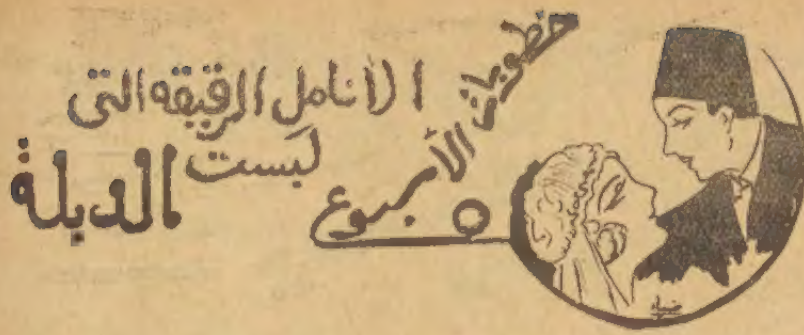 خطوبات الأسبوع
الأنامل الرقيقه التى
لبست الدبلة